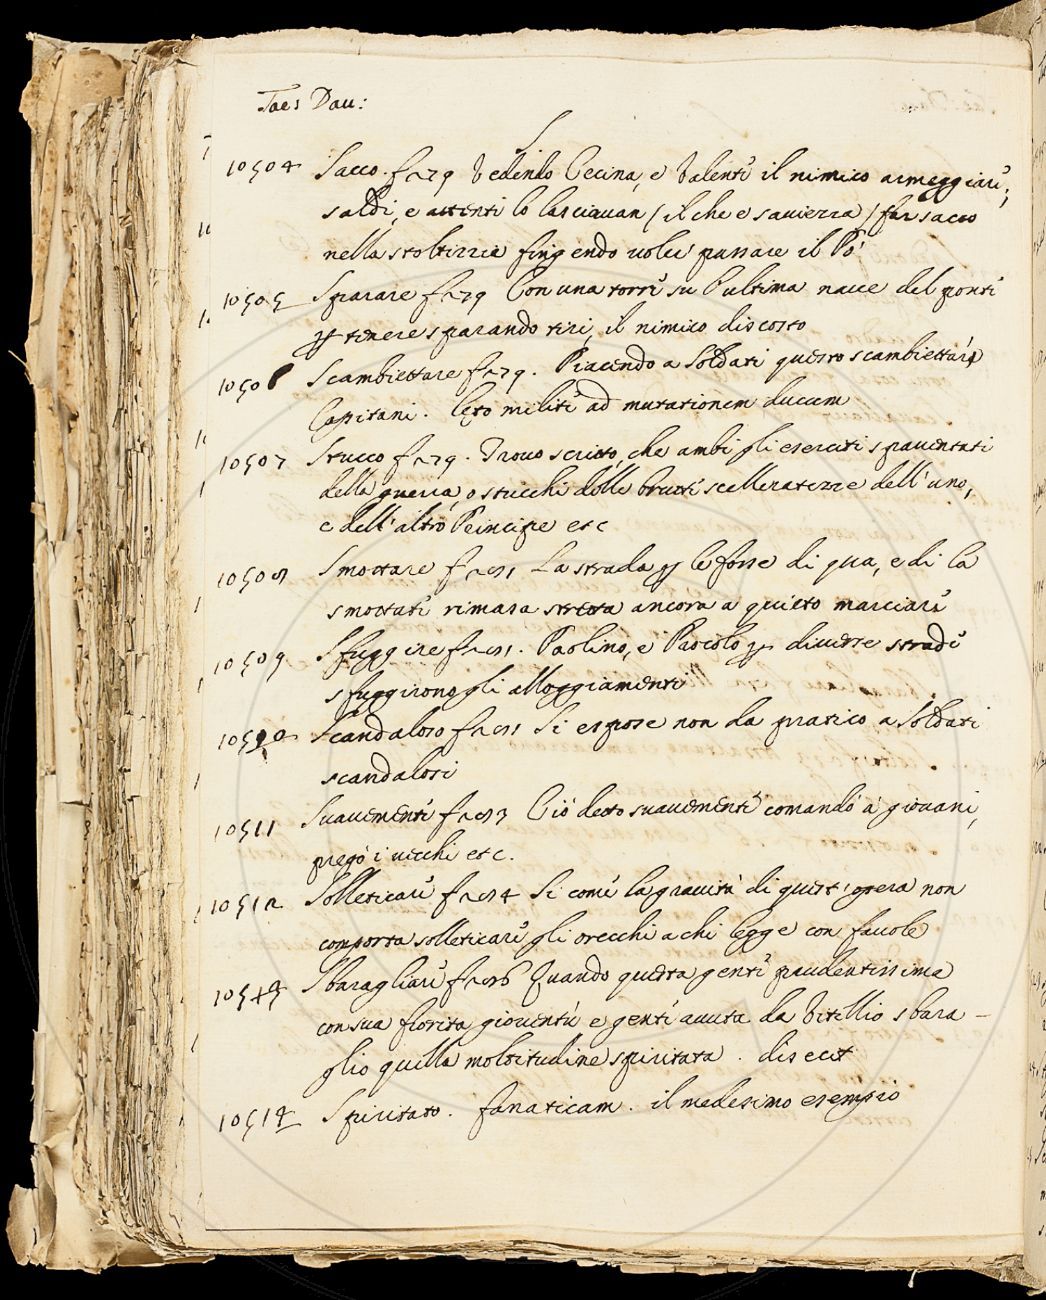 Tac: Dau:
S.
10504 Sacco. f 279 Vedendo Cecina, e Valente il nimico armeggiare,
saldi, e attenti lo lasciavan (il che e saviezza) far sacco
nella stoltizia fingendo voler passare il Pò
10505 Sparare f 279 Con una torre su l'ultima nave del ponte
per tenere sparando tiri, il nimico discosto
10506 Scambiettare f 279. Piacendo a Soldati questo scambiettar
Capitani. leto milite ad mutationem ducum
10507 Stucco f 279. Trovo scritto, che ambi gli eserciti spaventati
della guerra, o stucchi delle brutte scelleratezze dell'uno,
e dell'altro Principe etc
10508 Smottare f 281 La strada per le fosse di qua, e di la
smottate rimasa stretta ancora a quieto marciare
10509 Sfuggire f 281. Paolino, e Procolo per diverse strade
sfuggirono gli alloggiamenti
10510 Scandaloso f 281 Si espose non da pratico a Soldati
scandalosi
10511 Suavemente f 283 Ciò detto suavemente comandò a' giovani,
pregò i vecchi etc.
10512 Solleticare f 284 Si come la gravità di quest'opera non
comporta solleticare gli orecchi a chi legge con favole
10513 Sbaragliare f 286 Quando questa gente prudentissima
con sua fiorita gioventù e gente avuta da Vitellio sbara-
gliò quella moltitudine spiritata. disecit
10514 Spiritato. fanaticam. il medesimo esempio